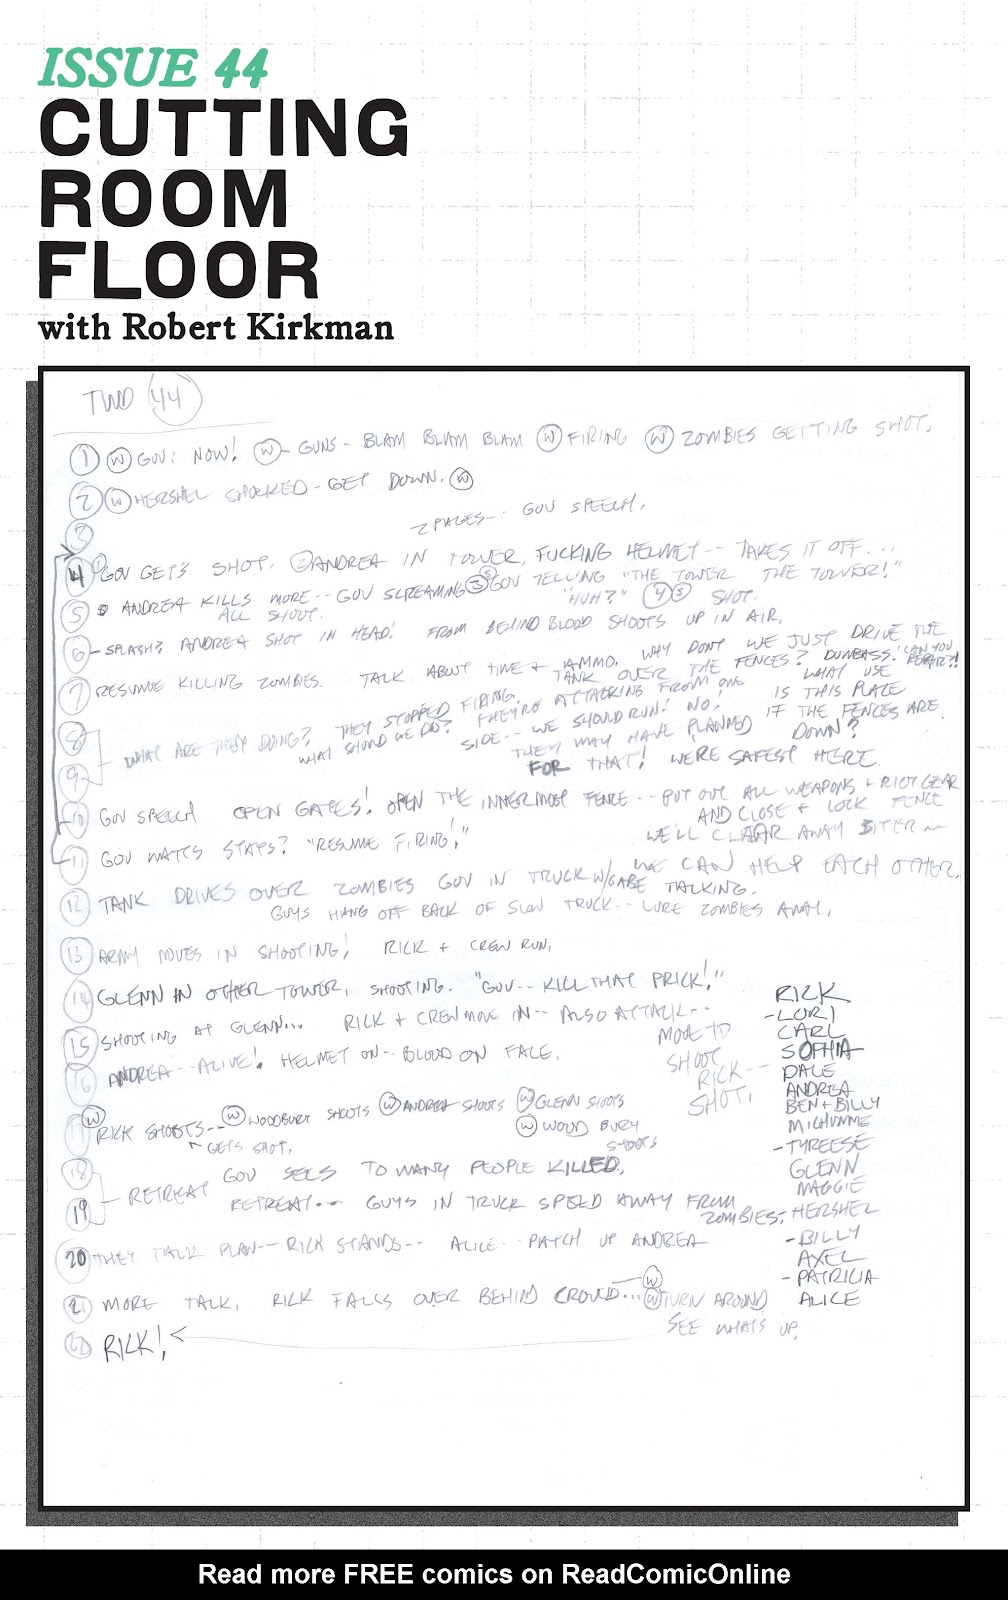 ISSUE 44
CUTTING
ROOM
FLOOR
with Robert Kirkman
TWD 44
1 W GOV: NOW! W - GUNS - BLAM BLAM BLAM W FIRING W ZOMBIES GETTING SHOT.
2 W HERSHEL SHOCKED - GET DOWN. W
3
2 PAGES -- GOV SPEECH.
4 1 GOV GETS SHOT. 2 ANDREA IN TOWER, FUCKING HELMET -- TAKES IT OFF...
5 ANDREA KILLS MORE -- GOV SCREAMING 3 S GOV TELLING "THE TOWER THE TOWER!"
ALL SHOOT. "HUH?" 4 S SHOT.
6 - SPLASH? ANDREA SHOT IN HEAD! FROM BEHIND BLOOD SHOOTS UP IN AIR.
7 RESUME KILLING ZOMBIES. TALK ABOUT TIME + AMMO. WHY DON'T WE JUST DRIVE THE
TANK OVER THE FENCES? DUMBASS. CAN YOU
WHAT USE
IS THIS PLACE
IF THE FENCES ARE
DOWN?
8 WHAT ARE THEY DOING? THEY STOPPED FIRING. THEY'RE ATTACKING FROM ONE
WHAT SHOULD WE DO? SIDE -- WE SHOULD RUN! NO!
THEY MAY HAVE PLANNED
9 FOR THAT! WE'RE SAFEST HERE.
10 GOV SPEECH OPEN GATES! OPEN THE INNERMOST FENCE -- PUT OUT ALL WEAPONS + RIOT GEAR
AND CLOSE + LOCK FENCE
WE'LL CLEAR AWAY BITER
11 GOV "RESUME FIRING!"
WE CAN HELP EACH OTHER.
12 TANK DRIVES OVER ZOMBIES GOV IN TRUCK W/GABE TALKING.
GUYS HANG OFF BACK OF SLOW TRUCK -- LURE ZOMBIES AWAY.
13 ARMY MOVES IN SHOOTING! RICK + CREW RUN.
14 GLENN IN OTHER TOWER, SHOOTING. "GOV -- KILL THAT PRICK!"
15 SHOOTING AT GLENN... RICK + CREW MOVE IN -- ALSO ATTACK --
MOVE TO
SHOOT
RICK --
SHOT.
16 ANDREA -- ALIVE! HELMET ON -- BLOOD ON FACE.
17 W RICK SHOOTS -- W WOODBURY SHOOTS W ANDREA SHOOTS W GLENN SHOOTS
GETS SHOT. W WOODBURY
SHOOTS
18 GOV SEES TO MANY PEOPLE KILLED.
RETREAT
19 RETREAT -- GUYS IN TRUCK SPEED AWAY FROM
ZOMBIES.
20 THEY TALK PLAN -- RICK STANDS -- ALICE -- PATCH UP ANDREA
21 MORE TALK. RICK FALLS OVER BEHIND CROWD... W
W TURN AROUND
SEE WHAT'S UP.
22 RICK!
RICK
- LORI
CARL
SOPHIA
DALE
ANDREA
BEN + BILLY
MICHONNE
- TYREESE
GLENN
MAGGIE
- HERSHEL
- BILLY
AXEL
- PATRICIA
ALICE
Read more FREE comics on ReadComicOnline